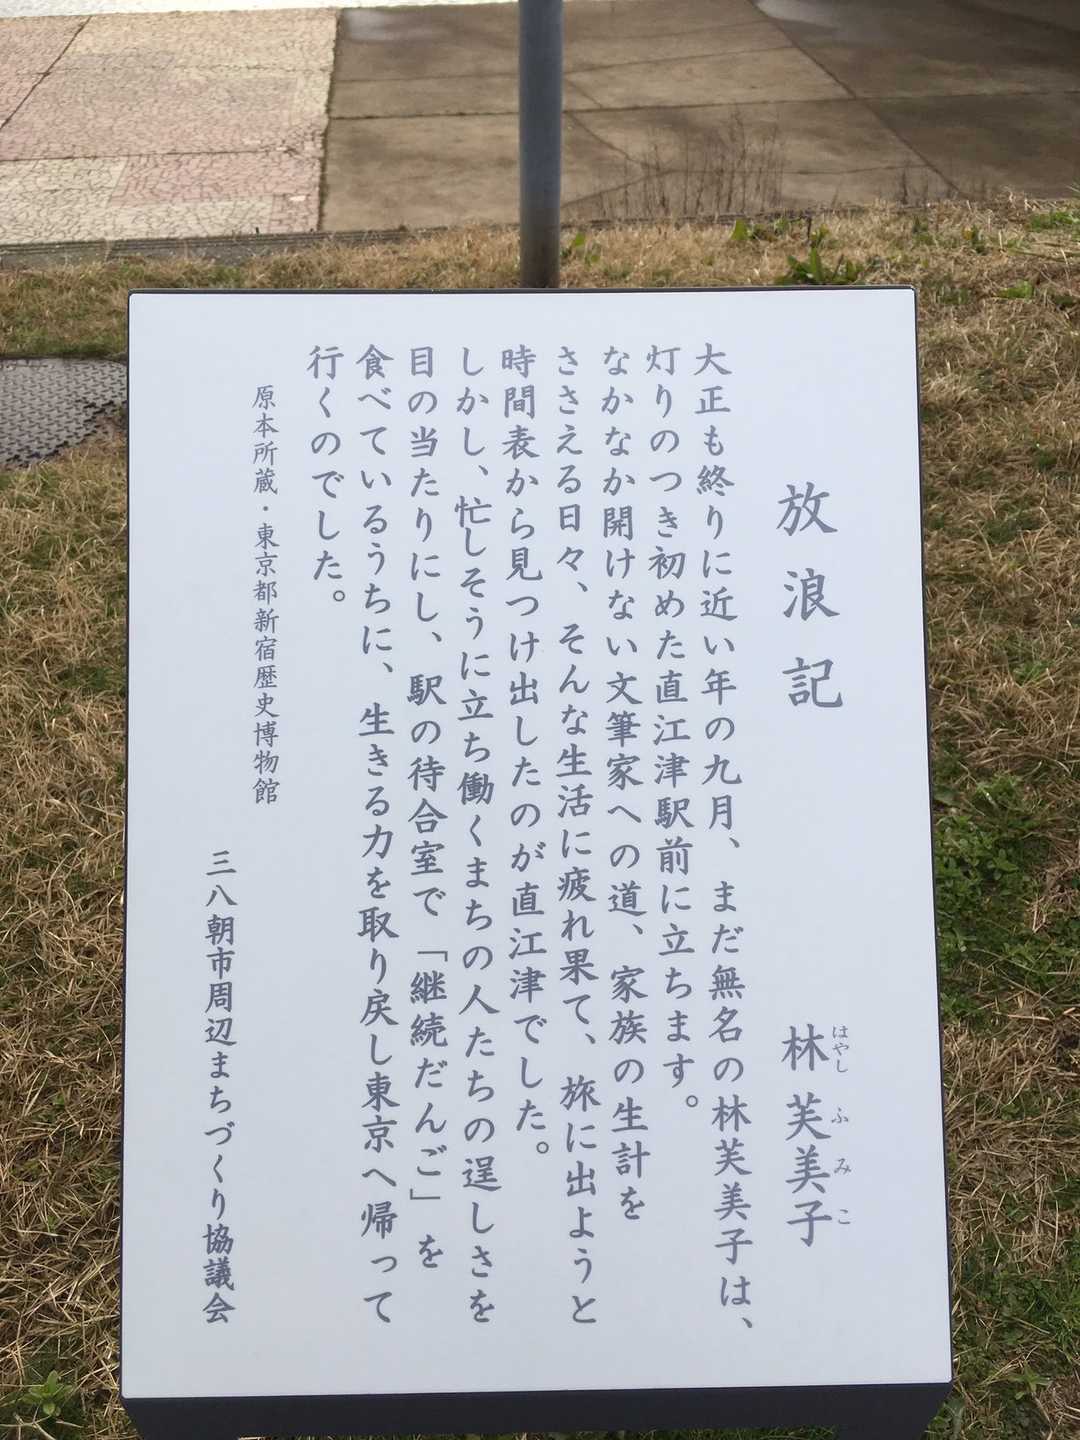 放浪記
林芙美子
はやし ふみこ
大正も終りに近い年の九月、まだ無名の林芙美子は、
灯りのつき初めた直江津駅前に立ちます。
なかなか開けない文筆家への道、家族の生計を
ささえる日々、そんな生活に疲れ果て、旅に出ようと
時間表から見つけ出したのが直江津でした。
しかし、忙しそうに立ち働くまちの人たちの逞しさを
目の当たりにし、駅の待合室で「継続だんご」を
食べているうちに、生きる力を取り戻し東京へ帰って
行くのでした。
原本所蔵・東京都新宿歴史博物館
三八朝市周辺まちづくり協議会